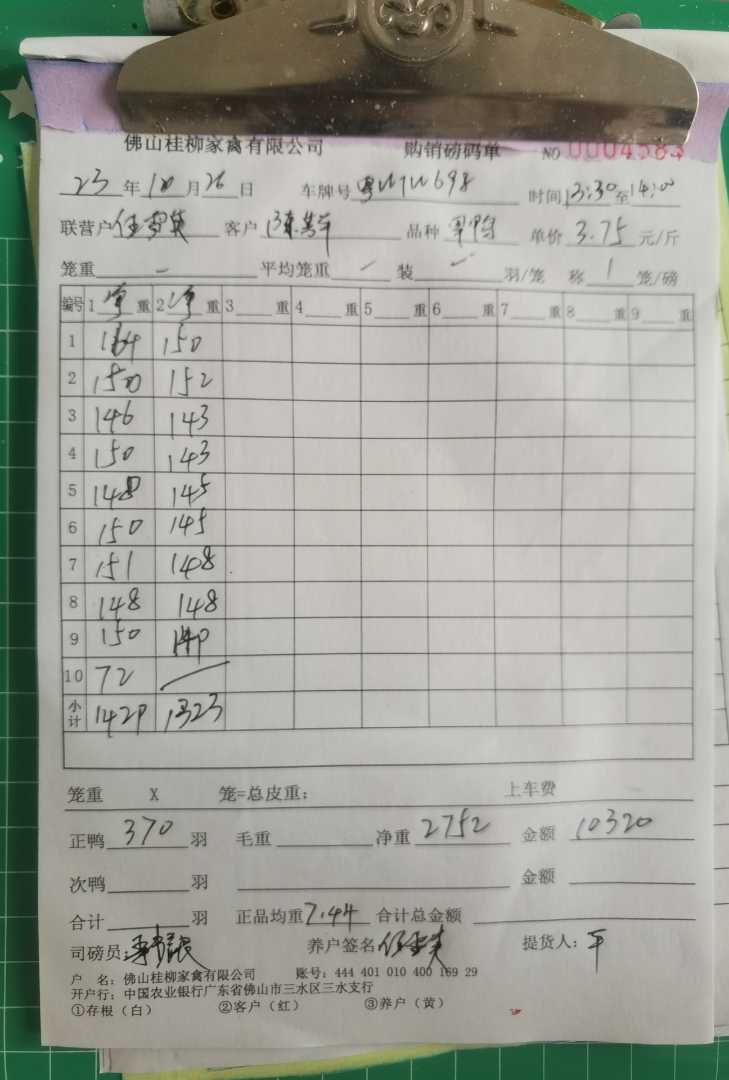 佛山桂柳家禽有限公司 购销磅码单 NO 0004584
23 年 10 月 26 日 车牌号 时间 13:30 至 14:00
联营户 客户 品种 单价 3.75 元/斤
笼重 — 平均笼重 — 装 羽/笼 称 1 笼/磅
编号 1 净 重 2 净 重 3 重 4 重 5 重 6 重 7 重 8 重 9 重
1 164 150
2 150 152
3 146 143
4 150 143
5 148 145
6 150 145
7 151 148
8 148 148
9 150 149
10 72
小计 1429 1323
笼重 X 笼=总皮重: 上车费
正鸭 370 羽 毛重 净重 2752 金额 10320
次鸭 羽 金额
合计 羽 正品均重 7.44 合计总金额
司磅员: 养户签名 提货人: 平
户 名: 佛山桂柳家禽有限公司 账号: 444 401 010 400 169 29
开户行: 中国农业银行广东省佛山市三水区三水支行
①存根(白) ②客户(红) ③养户(黄)